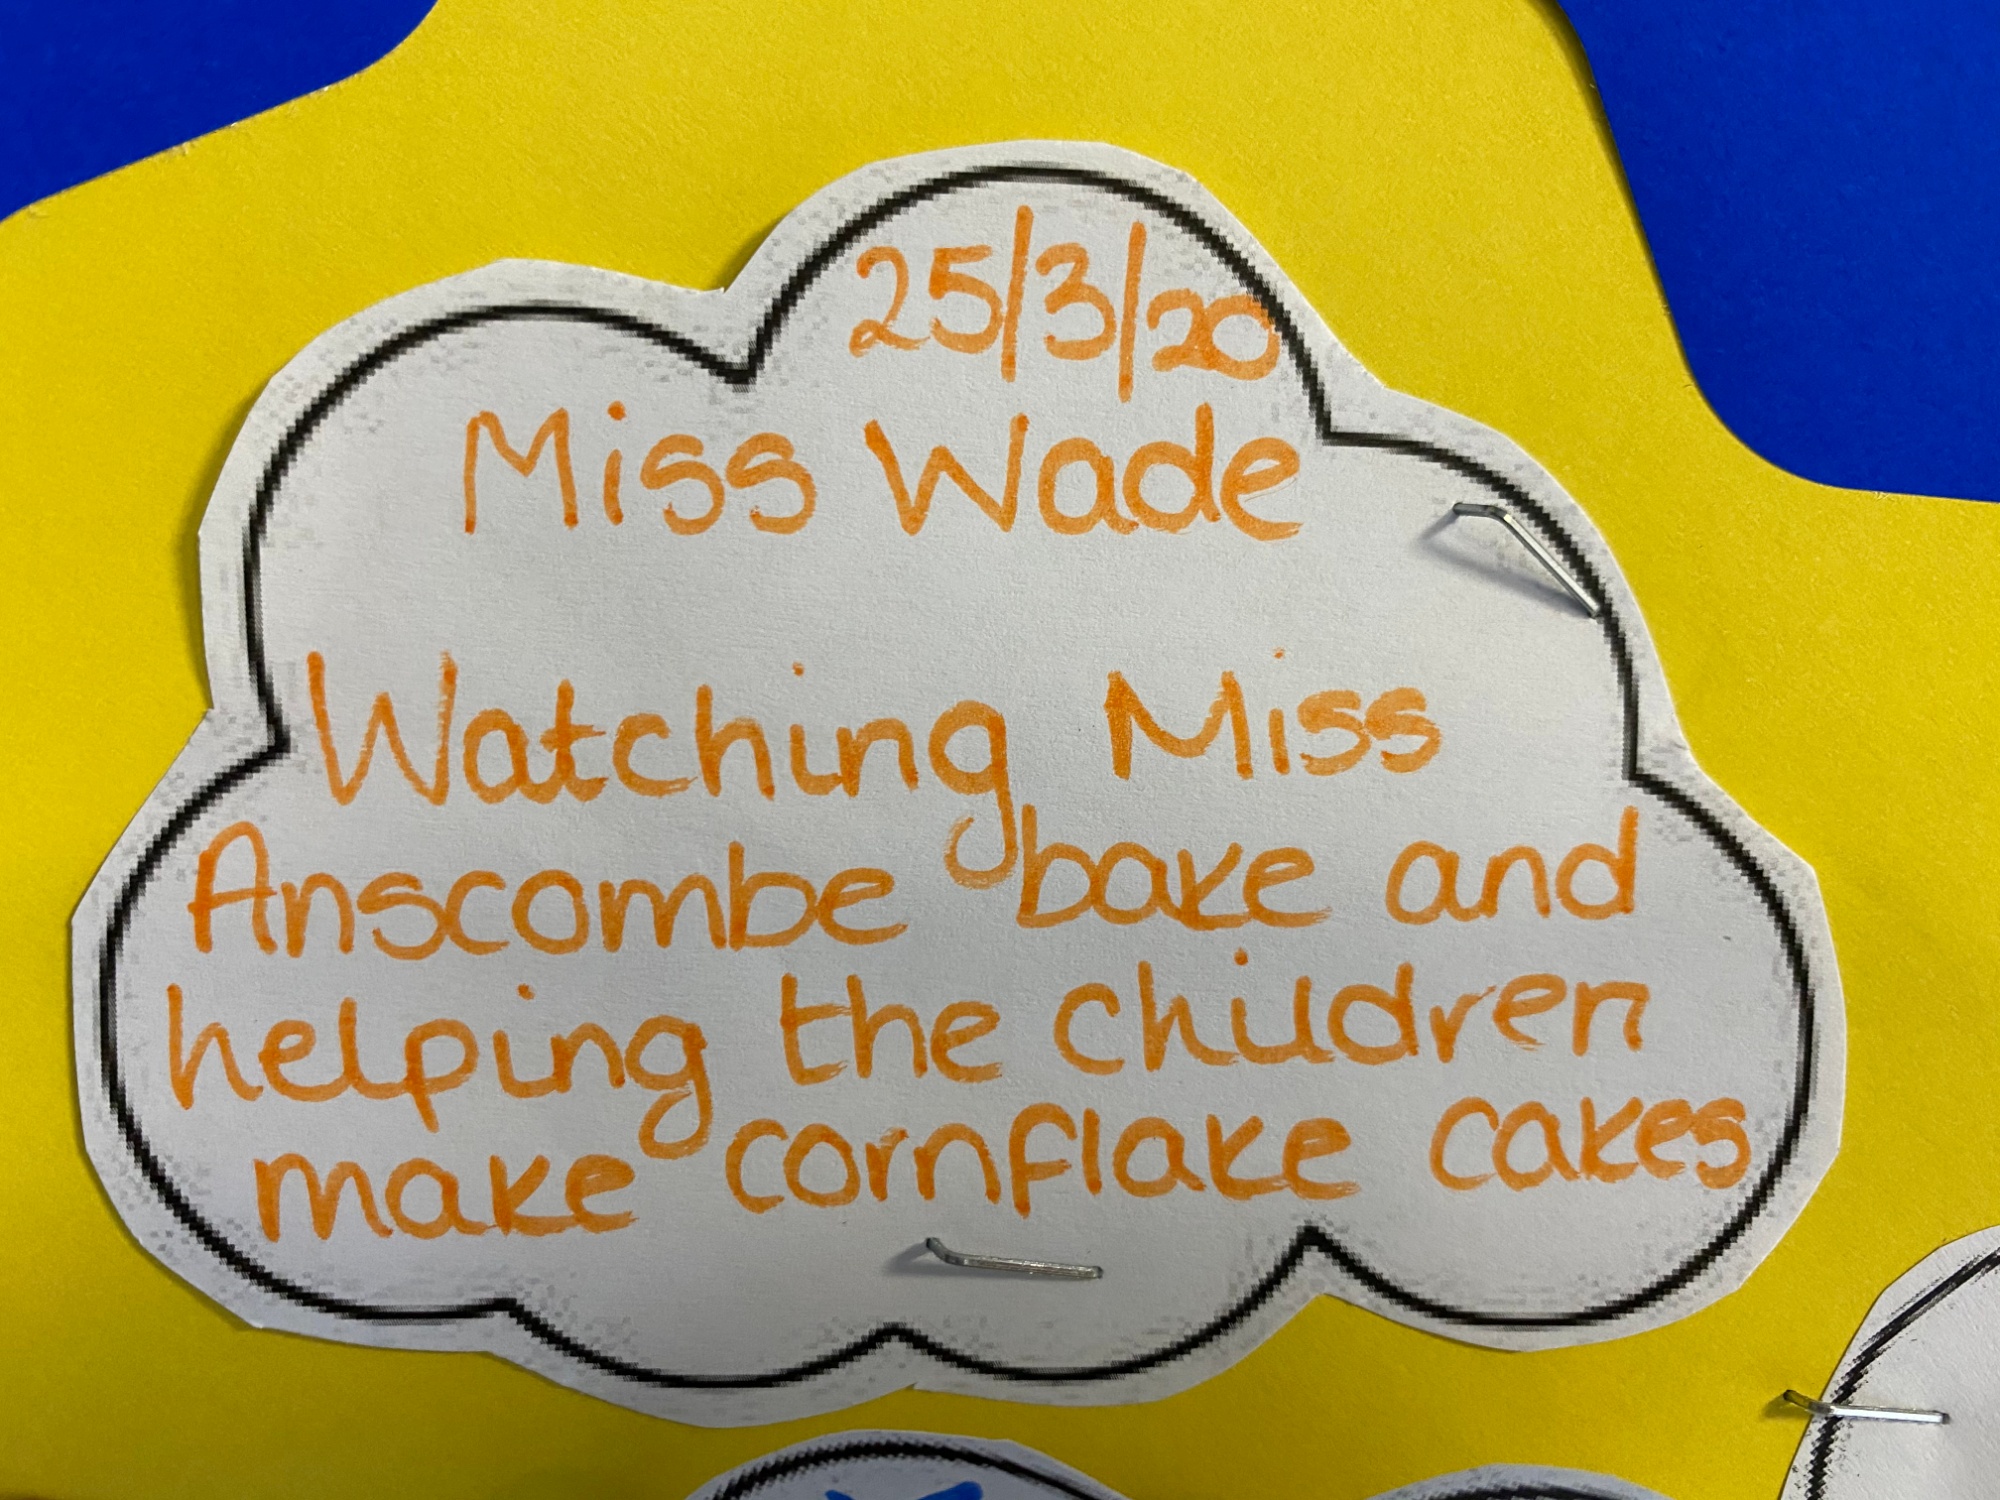 25/3/20
Miss Wade
Watching Miss
Anscombe bake and
helping the children
make cornflake cakes